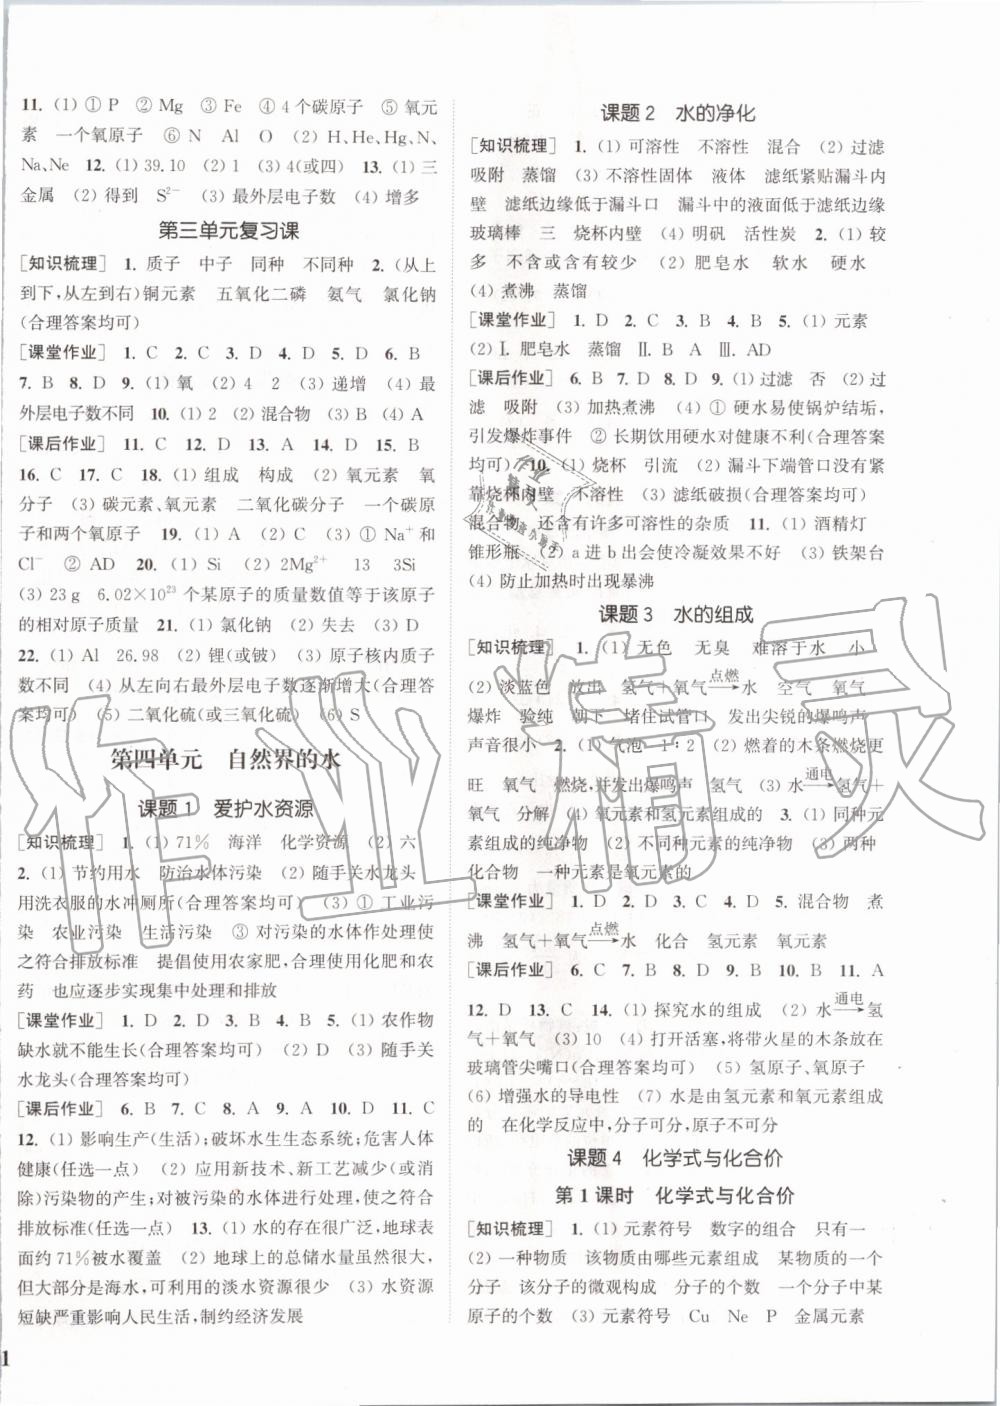 11. (1) ① P ② Mg ③ Fe ④ 4个碳原子 ⑤ 氧元
素 一个氧原子 ⑥ N Al O (2) H、He、Hg、N、
Na、Ne 12. (1) 39.10 (2) 1 (3) 4(或四) 13. (1) 三
金属 (2) 得到 S²⁻ (3) 最外层电子数 (4) 增多
第三单元复习课
[知识梳理] 1. 质子 中子 同种 不同种 2. (从上
到下,从左到右)铜元素 五氧化二磷 氨气 氯化钠
(合理答案均可)
[课堂作业] 1. C 2. C 3. D 4. D 5. D 6. B
7. B 8. D 9. (1) 氧 (2) 4 2 (3) 递增 (4) 最
外层电子数不同 10. (1) 2 (2) 混合物 (3) B (4) A
[课后作业] 11. C 12. D 13. A 14. D 15. B
16. C 17. C 18. (1) 组成 构成 (2) 氧元素 氧
分子 (3) 碳元素、氧元素 二氧化碳分子 一个碳原
子和两个氧原子 19. (1) A (2) C (3) ① Na⁺ 和
Cl⁻ ② AD 20. (1) Si (2) 2Mg²⁺ 13 3Si
(3) 23 g 6.02×10²³ 个某原子的质量数值等于该原子
的相对原子质量 21. (1) 氯化钠 (2) 失去 (3) D
22. (1) Al 26.98 (2) 锂(或铍) (3) 原子核内质子
数不同 (4) 从左向右最外层电子数逐渐增大(合理答
案均可) (5) 二氧化硫(或三氧化硫) (6) S
第四单元 自然界的水
课题1 爱护水资源
[知识梳理] 1. (1) 71% 海洋 化学资源 (2) 六
2. (1) 节约用水 防治水体污染 (2) 随手关水龙头
用洗衣服的水冲厕所(合理答案均可) (3) ① 工业污
染 农业污染 生活污染 ③ 对污染的水体作处理使
之符合排放标准 提倡使用农家肥,合理使用化肥和农
药 也应逐步实现集中处理和排放
[课堂作业] 1. D 2. D 3. D 4. B 5. (1) 农作物
缺水就不能生长(合理答案均可) (2) D (3) 随手关
水龙头(合理答案均可)
[课后作业] 6. B 7. B 8. A 9. A 10. D 11. C
12. (1) 影响生产(生活);破坏水生生态系统;危害人体
健康(任选一点) (2) 应用新技术、新工艺减少(或消
除)污染物的产生;对被污染的水体进行处理,使之符合
排放标准(任选一点) 13. (1) 水的存在很广泛,地球表
面约71%被水覆盖 (2) 地球上的总储水量虽然很大,
但大部分是海水,可利用的淡水资源很少 (3) 水资源
短缺严重影响人民生活,制约经济发展
1
课题2 水的净化
[知识梳理] 1. (1) 可溶性 不溶性 混合 (2) 过滤
吸附 蒸馏 (3) 不溶性固体 液体 滤纸紧贴漏斗内
壁 滤纸边缘低于漏斗口 漏斗中的液面低于滤纸边缘
玻璃棒 三 烧杯内壁 (4) 明矾 活性炭 2. (1) 较
多 不含或含有较少 (2) 肥皂水 软水 硬水
(4) 煮沸 蒸馏
[课堂作业] 1. D 2. C 3. B 4. B 5. (1) 元素
(2) Ⅰ. 肥皂水 蒸馏 Ⅱ. B A Ⅲ. AD
[课后作业] 6. B 7. B 8. D 9. (1) 过滤 否 (2) 过
滤 吸附 (3) 加热煮沸 (4) ① 硬水易使锅炉结垢,
引发爆炸事件 ② 长期饮用硬水对健康不利(合理答案
均可) 10. (1) 烧杯 引流 (2) 漏斗下端管口没有紧
靠烧杯内壁 不溶性 (3) 滤纸破损(合理答案均可)
混合物 还含有许多可溶性的杂质 11. (1) 酒精灯
锥形瓶 (2) a进b出会使冷凝效果不好 (3) 铁架台
(4) 防止加热时出现暴沸
课题3 水的组成
[知识梳理] 1. (1) 无色 无臭 难溶于水 小
(2) 淡蓝色 放出 氢气+氧气 点燃→ 水 空气 氧气
爆炸 验纯 朝下 堵住试管口 发出尖锐的爆鸣声
声音很小 2. (1) 气泡 1∶2 (2) 燃着的木条燃烧更
旺 氧气 燃烧,并发出爆鸣声 氢气 (3) 水 通电→ 氢气+
氧气 分解 (4) 氧元素和氢元素组成 3. (1) 同种元
素组成的纯净物 (2) 不同种元素的纯净物 (3) 两种
化合物 一种元素是氧元素的
[课堂作业] 1. D 2. D 3. C 4. D 5. 混合物 煮
沸 氢气+氧气 点燃→ 水 化合 氢元素 氧元素
[课后作业] 6. C 7. B 8. D 9. B 10. B 11. A
12. D 13. C 14. (1) 探究水的组成 (2) 水 通电→ 氢
气+氧气 (3) 10 (4) 打开活塞,将带火星的木条放在
玻璃管尖嘴口(合理答案均可) (5) 氢原子、氧原子
(6) 增强水的导电性 (7) 水是由氢元素和氧元素组成
的 在化学反应中,分子可分,原子不可分
课题4 化学式与化合价
第1课时 化学式与化合价
[知识梳理] 1. (1) 元素符号 数字的组合 只有一
(2) 一种物质 该物质由哪些元素组成 某物质的一个
分子 该分子的微观构成 分子的个数 一个分子中某
原子的个数 (3) 元素符号 Cu Ne P 金属元素
作业精灵